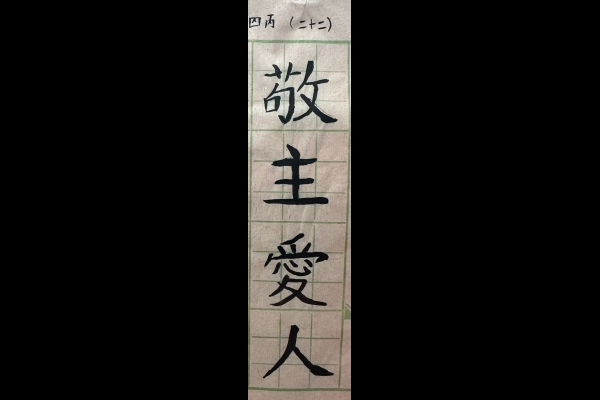 四丙（二十二）
敬主愛人